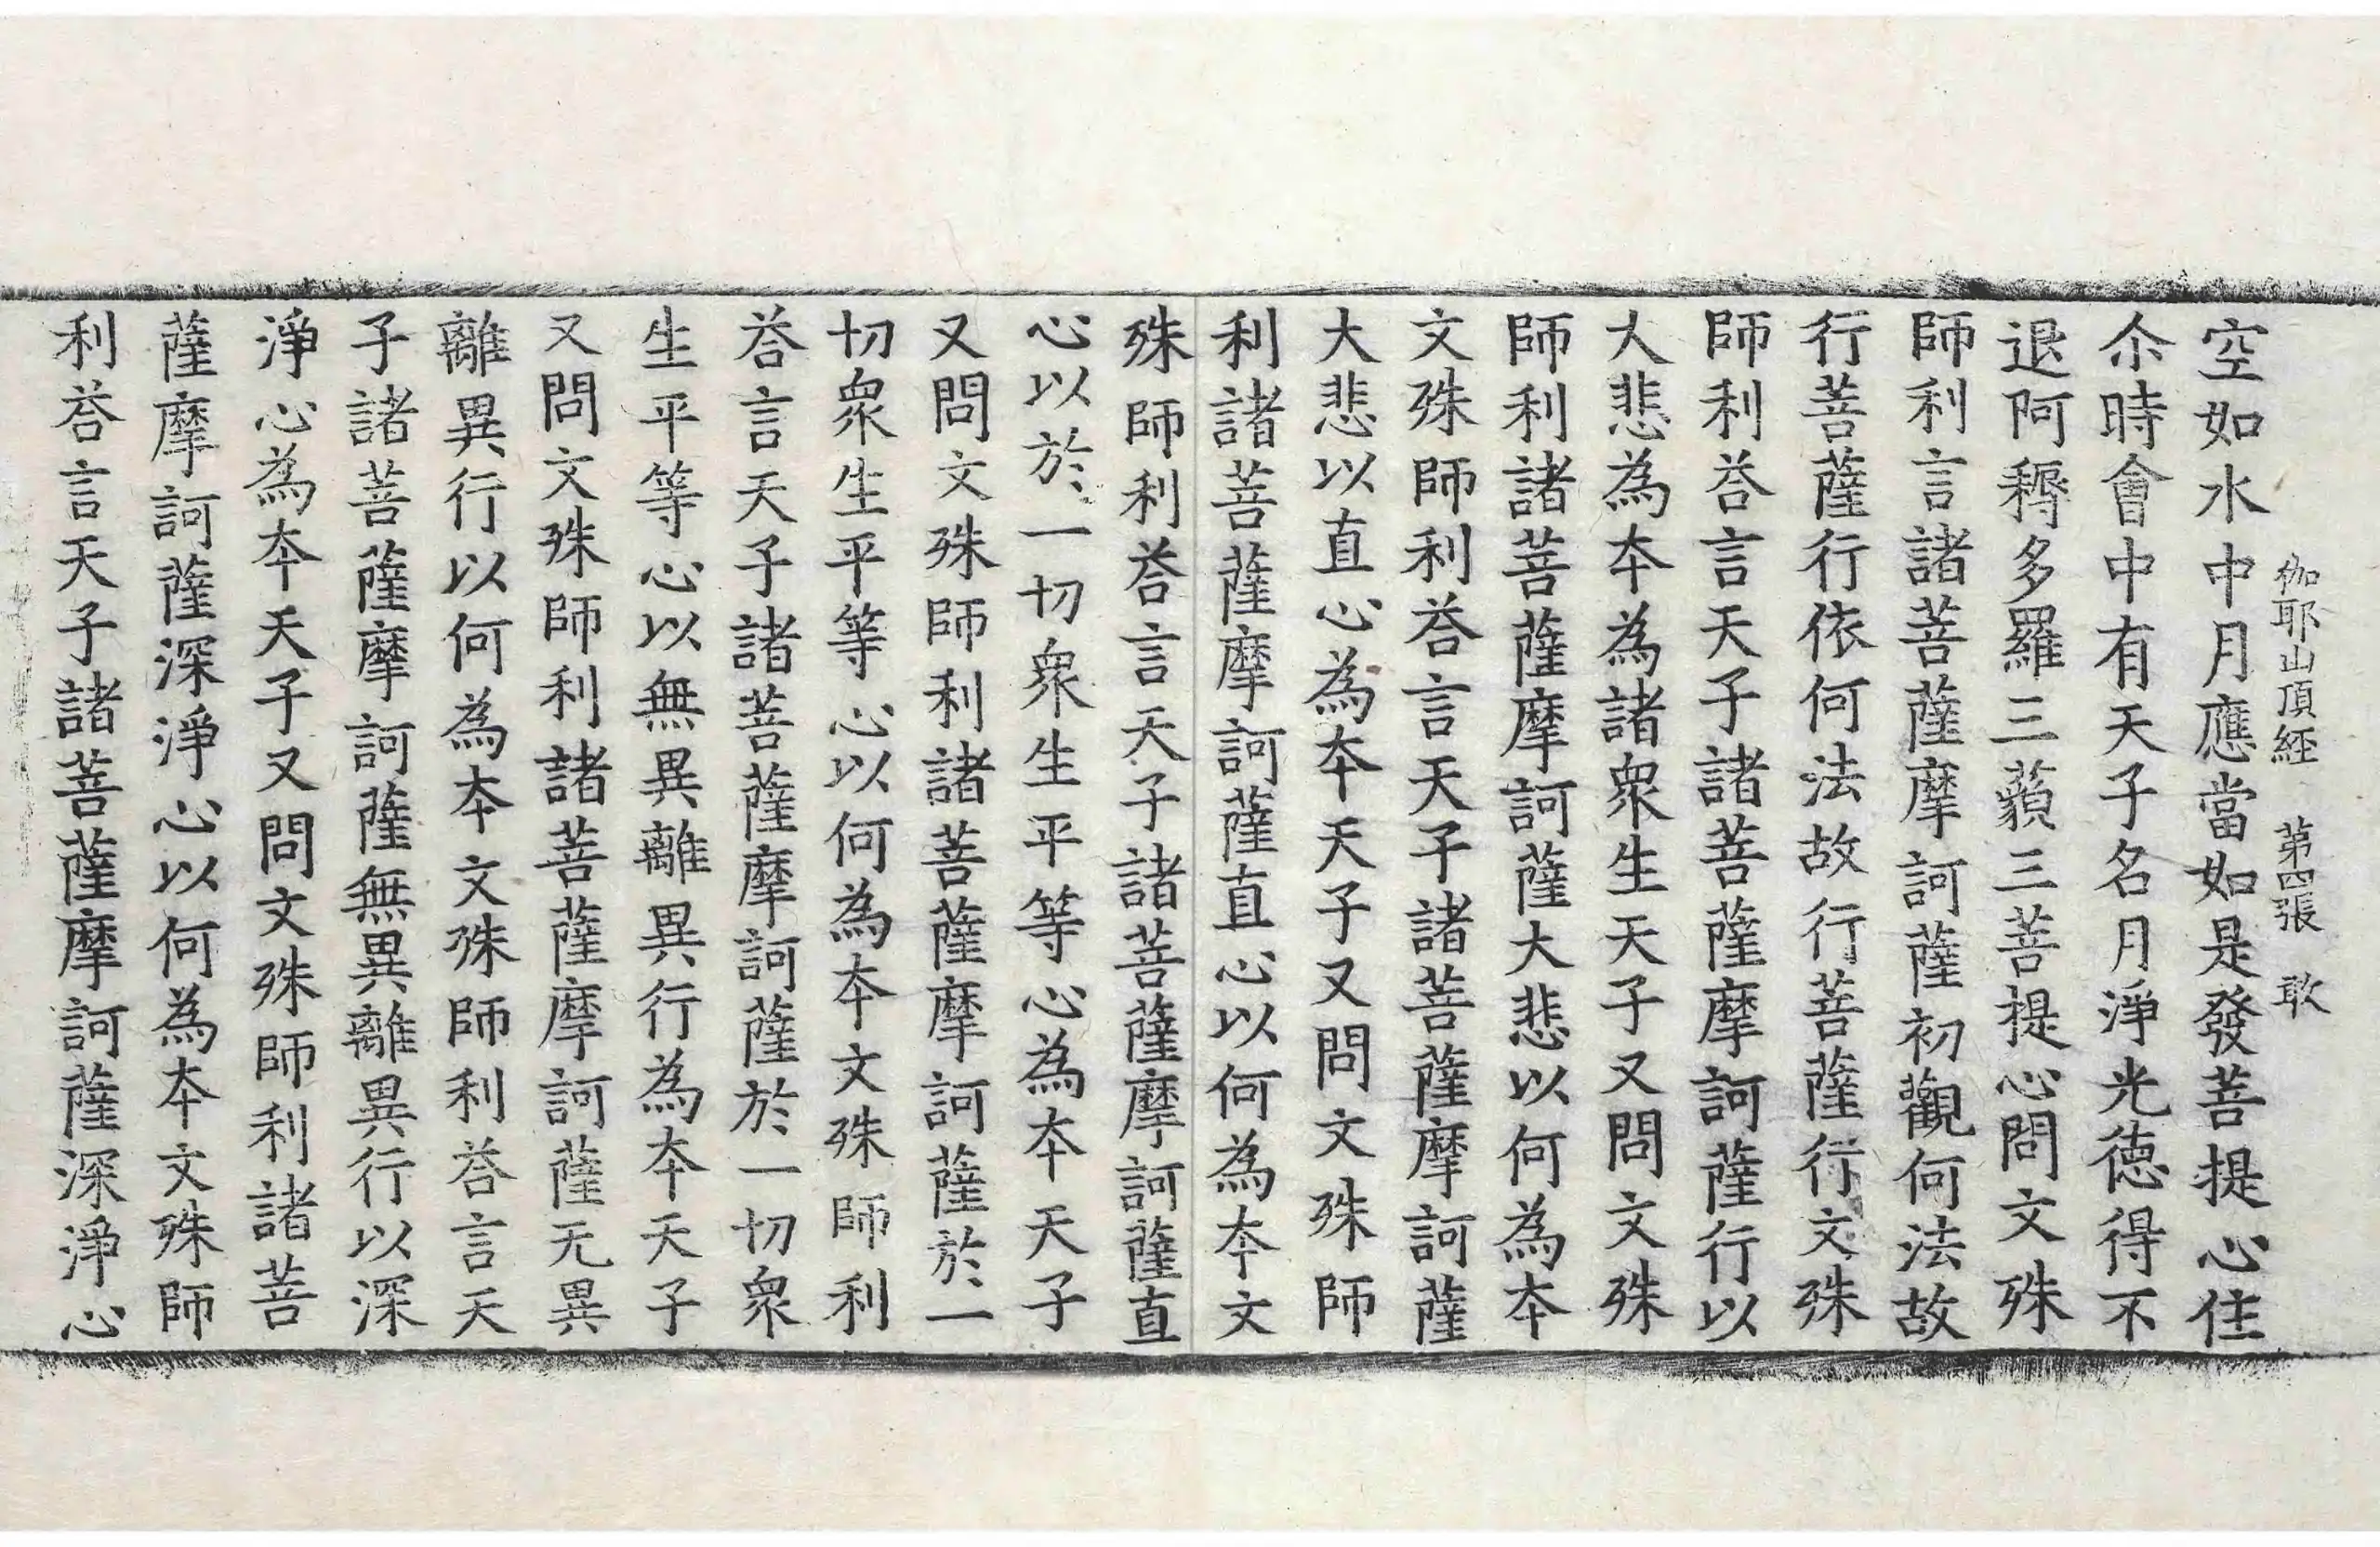 伽耶山頂経 第四張 敢
空如水中月應當如是發菩提心住
尒時會中有天子名月淨光德得不
退阿耨多羅三藐三菩提心問文殊
師利言諸菩薩摩訶薩初觀何法故
行菩薩行依何法故行菩薩行文殊
師利荅言天子諸菩薩摩訶薩行以
大悲為本為諸衆生天子又問文殊
師利諸菩薩摩訶薩大悲以何為本
文殊師利荅言天子諸菩薩摩訶薩
大悲以直心為本天子又問文殊師
利諸菩薩摩訶薩直心以何為本文
殊師利荅言天子諸菩薩摩訶薩直
心以於一切衆生平等心為本天子
又問文殊師利諸菩薩摩訶薩於一
切衆生平等心以何為本文殊師利
荅言天子諸菩薩摩訶薩於一切衆
生平等心以無異離異行為本天子
又問文殊師利諸菩薩摩訶薩无異
離異行以何為本文殊師利荅言天
子諸菩薩摩訶薩無異離異行以深
淨心為本天子又問文殊師利諸菩
薩摩訶薩深淨心以何為本文殊師
利荅言天子諸菩薩摩訶薩深淨心